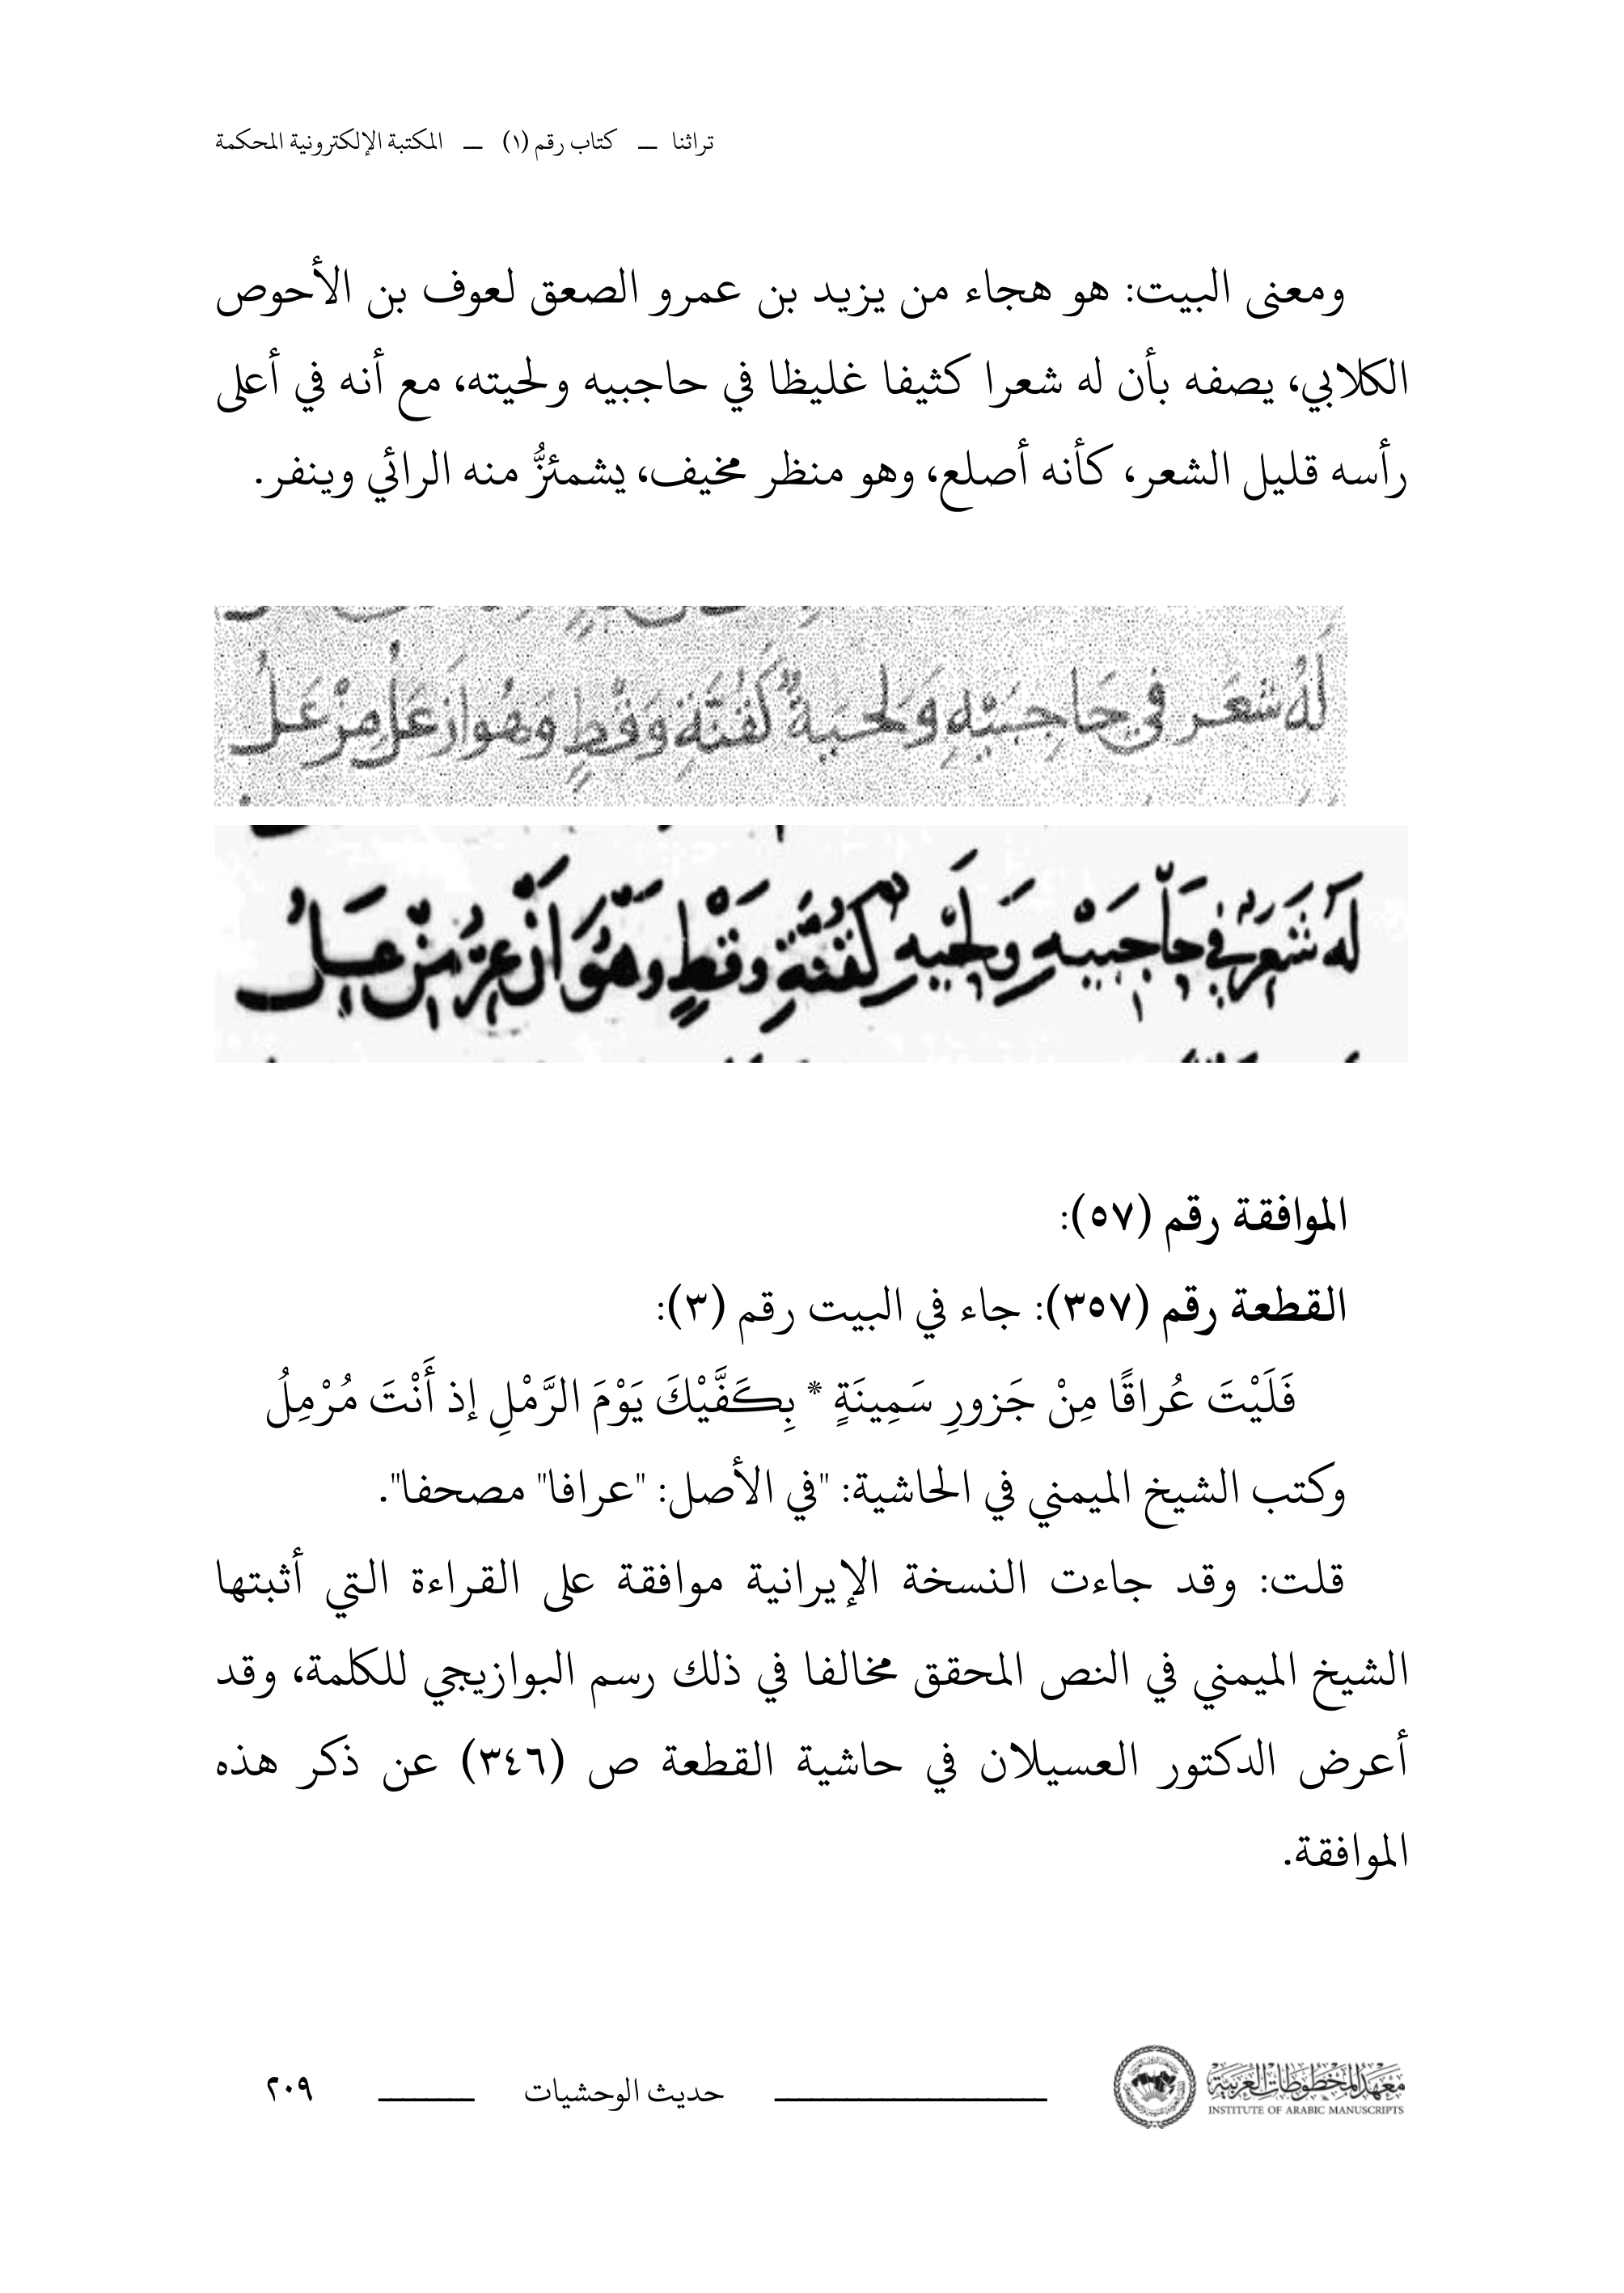 تراثنا — كتاب رقم (١) — المكتبة الإلكترونية المحكمة
ومعنى البيت: هو هجاء من يزيد بن عمرو الصعق لعوف بن الأحوص
الكلابي، يصفه بأن له شعرا كثيفا غليظا في حاجبيه ولحيته، مع أنه في أعلى
رأسه قليل الشعر، كأنه أصلع، وهو منظر مخيف، يشمئزُّ منه الرائي وينفر.
لَهُ شعَر في حَاجِبَيْهِ وَلحيَة كَفتَةِ وَقْطٍ وَهُوَ
لَهُ شَعَرٌ في حَاجبَيْهِ ولحْيَةٍ وَقْطٍ وهُوَ
الموافقة رقم (٥٧):
القطعة رقم (٣٥٧): جاء في البيت رقم (٣):
فَلَيْتَ عُراقًا مِنْ جَزورِ سَمِينَةٍ * بِكَفَّيْكَ يَوْمَ الرَّمْلِ إذ أَنْتَ مُرْمِلُ
وكتب الشيخ الميمني في الحاشية: "في الأصل: "عرافا" مصحفا".
قلت: وقد جاءت النسخة الإيرانية موافقة على القراءة التي أثبتها
الشيخ الميمني في النص المحقق مخالفا في ذلك رسم البوازيجي للكلمة، وقد
أعرض الدكتور العسيلان في حاشية القطعة ص (٣٤٦) عن ذكر هذه
الموافقة.
معهد المخطوطات العربية
INSTITUTE OF ARABIC MANUSCRIPTS
حديث الوحشيات
٢٠٩